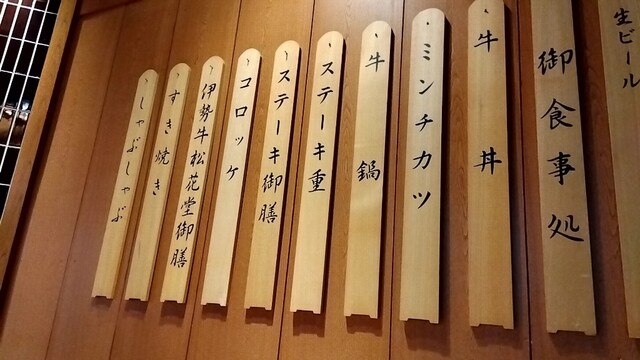 生ビール
御食事処
牛丼
ミンチカツ
牛鍋
ステーキ重
ステーキ御膳
コロッケ
伊勢牛松花堂御膳
すき焼き
しゃぶしゃぶ